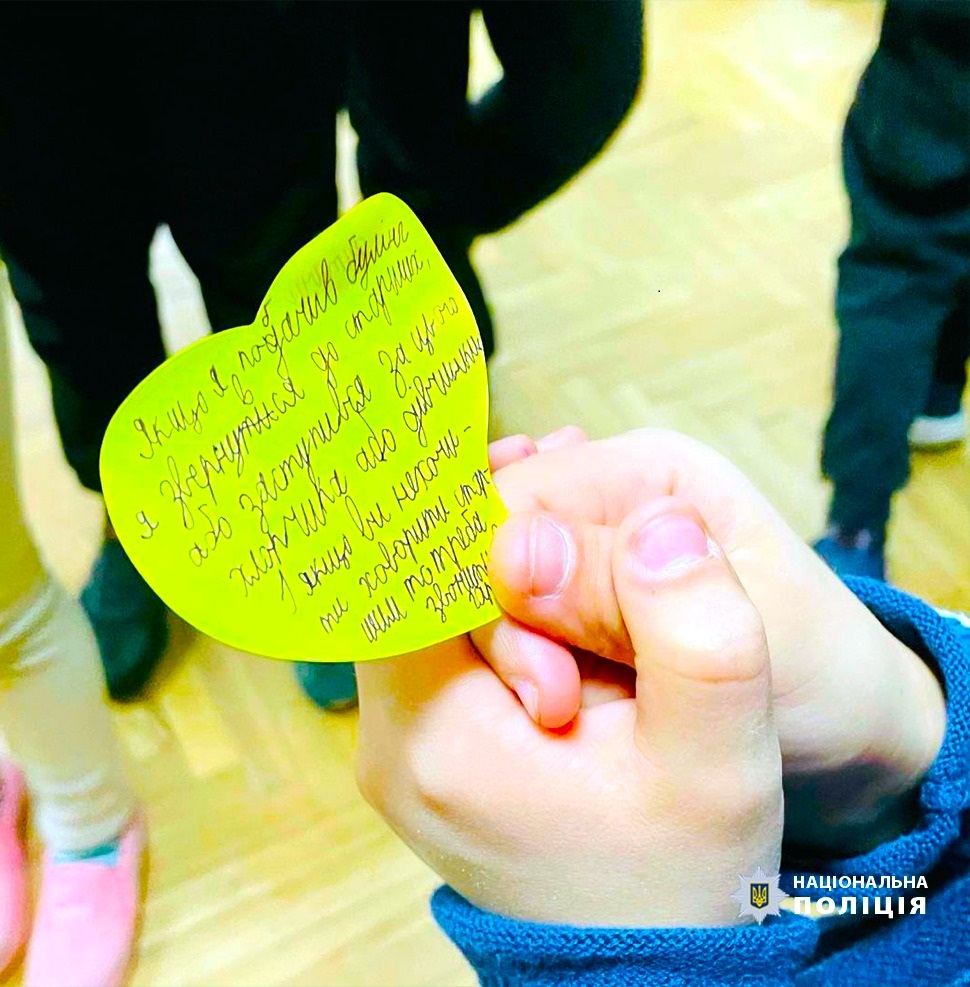 Якщо я побачив булінг
я в звернувся до старших,
або заступився за цього
хлопчика або дівчинки
І якщо ви нехочи-
ти ховорити стар-
шим то треба
НАЦІОНАЛЬНА
ПОЛІЦІЯ